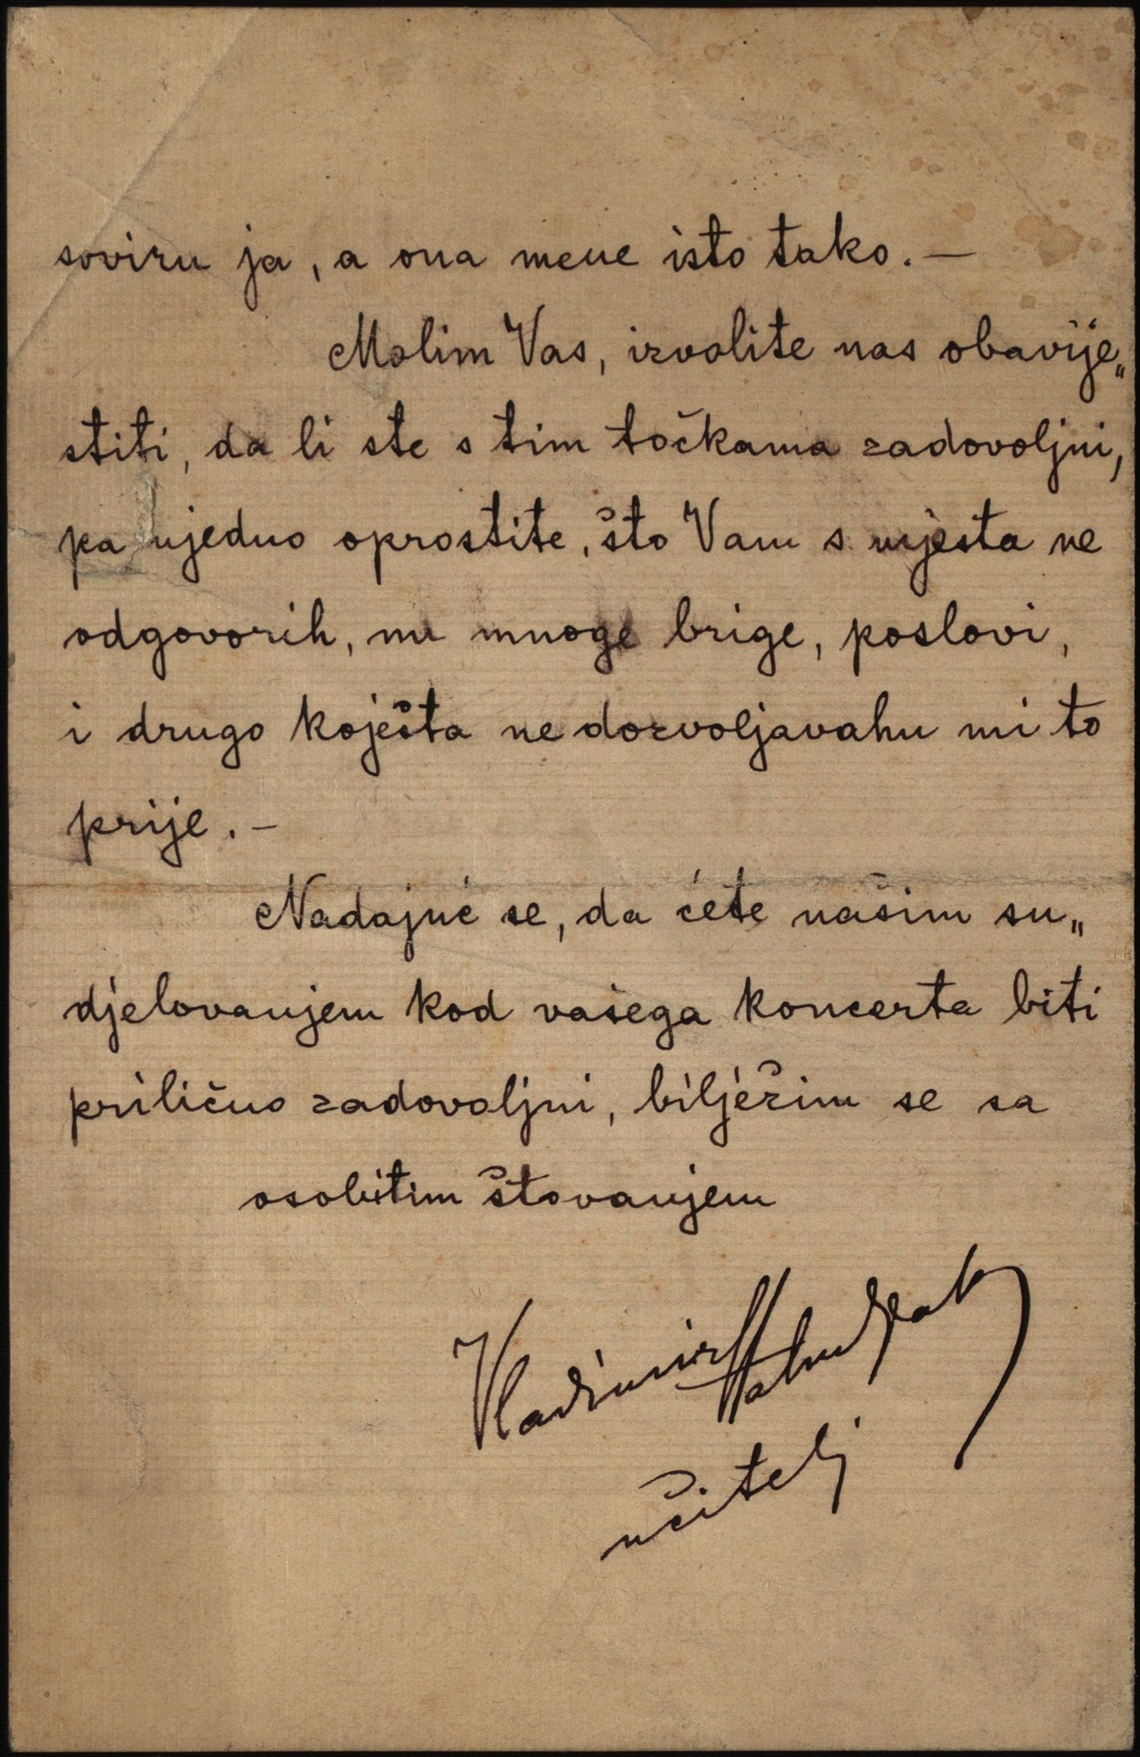 soviru ja, a ona mene isto tako. —
Molim Vas, izvolite nas obavije„
stiti, da li ste s tim točkama zadovoljni,
pa ujedno oprostite, što Vam s mjesta ne
odgovorih, nu mnoge brige, poslovi,
i drugo koješta ne dozvoljavahu mi to
prije. —
Nadajuć se, da ćete našim su„
djelovanjem kod vašega koncerta biti
prilično zadovoljni, bilježim se sa
osobitim štovanjem
Vladimir
učitelj